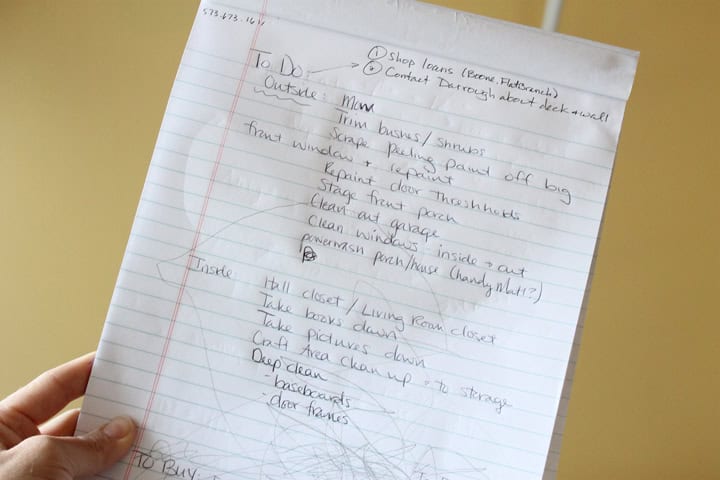 573.673.1611
To Do: → ① Shop loans (Boone, FlatBranch)
② Contact Darrough about deck + wall
Outside: Mow
Trim bushes/shrubs
Scrape peeling paint off big
front window + repaint
Repaint door threshholds
Stage front porch
Clean out garage
Clean windows inside + out
powerwash porch/house (handy Matt?)
Inside: Hall closet / Living Room closet
Take books down
Take pictures down
Craft Area clean up + to storage
Deep clean
- baseboards
- door frames
TO BUY: